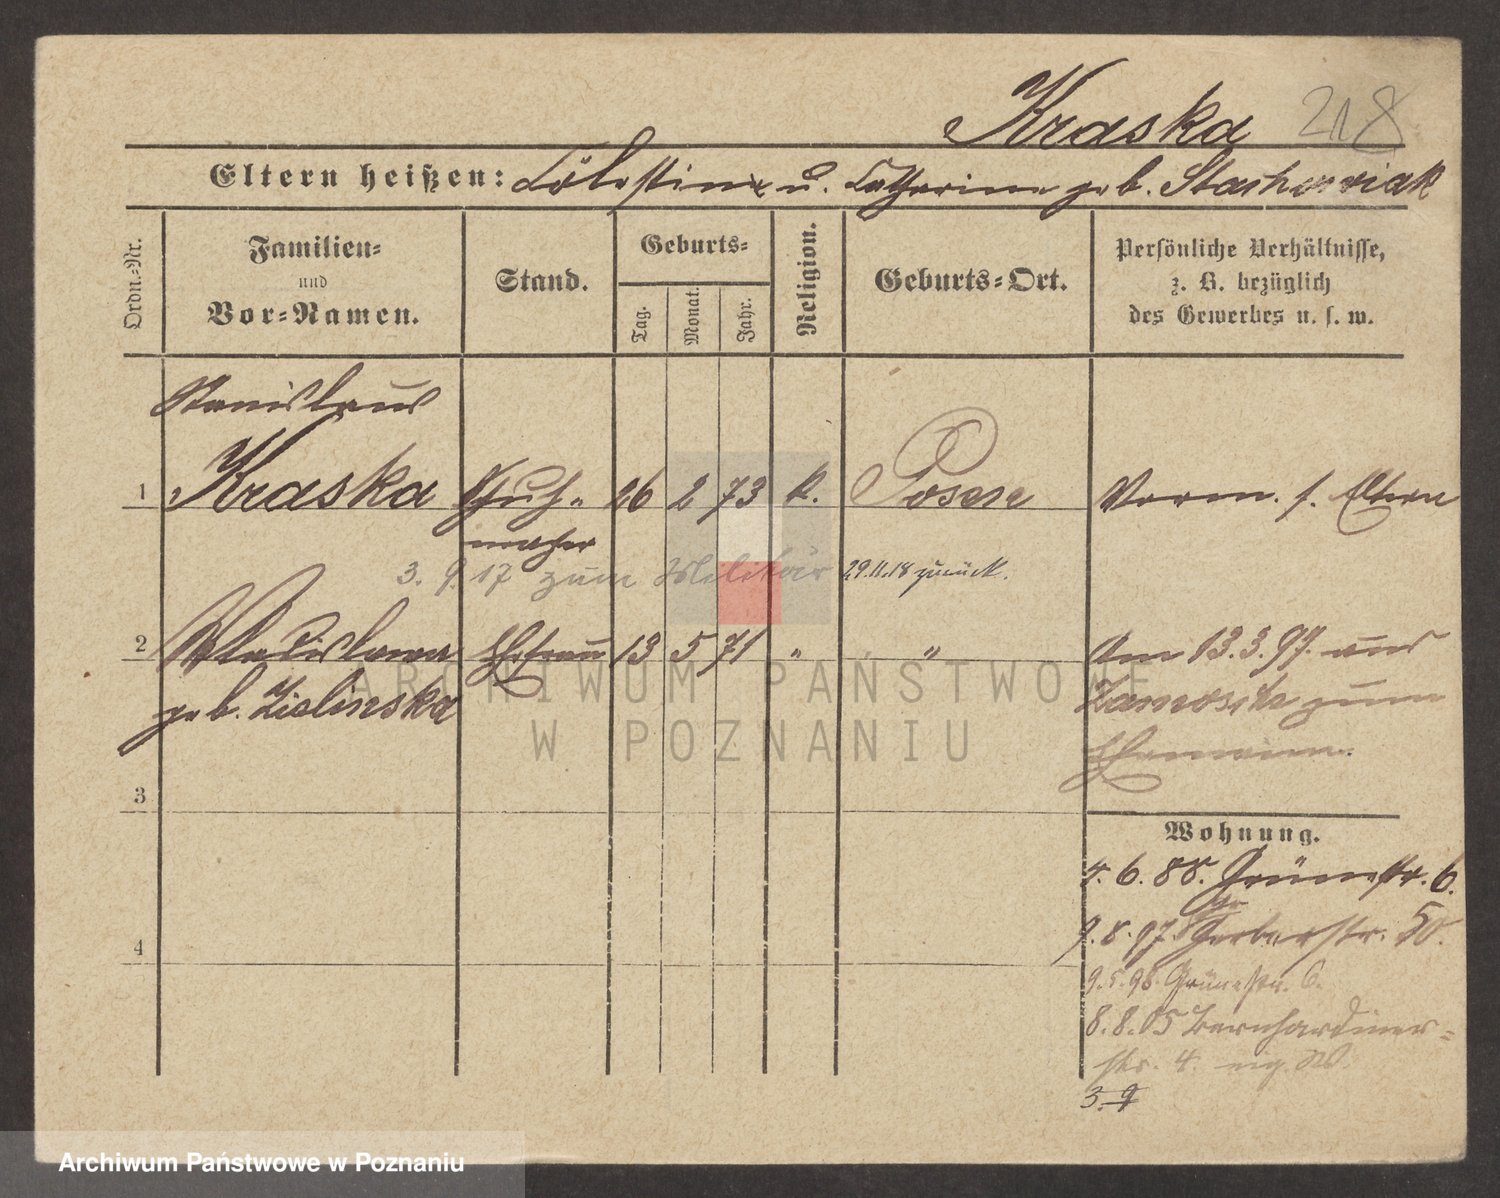 Kraska 218
Eltern heißen: Cölestin u. Catharina geb. Stachowiak
Ordn.-Nr.
Familien-
und
Vor-Namen.
Stand.
Geburts-
Tag.
Monat.
Jahr.
Religion.
Geburts-Ort.
Persönliche Verhältnisse,
z. B. bezüglich
des Gewerbes u. s. w.
Stanislaus
1 Kraska Schuh- 26 2 73 k. Posen Vorm. s. Eltern
macher
3. 9. 17 zum Militär 29.11.18 zurück.
2 Wladislawa Ehefrau 13 5 71 " " Am 13.3.97. aus
geb. Zielinska
zum
Ehemann.
3
Wohnung.
4. 6. 88. Grünestr. 6.
gr
9. 8. 97. Gerberstr. 50.
9. 5. 98. Grünestr. 6.
8. 8. 05 Bernhardiner-
str. 4. eig. W.
3. 9
4
ARCHIWUM PAŃSTWOWE
W POZNANIU
Archiwum Państwowe w Poznaniu